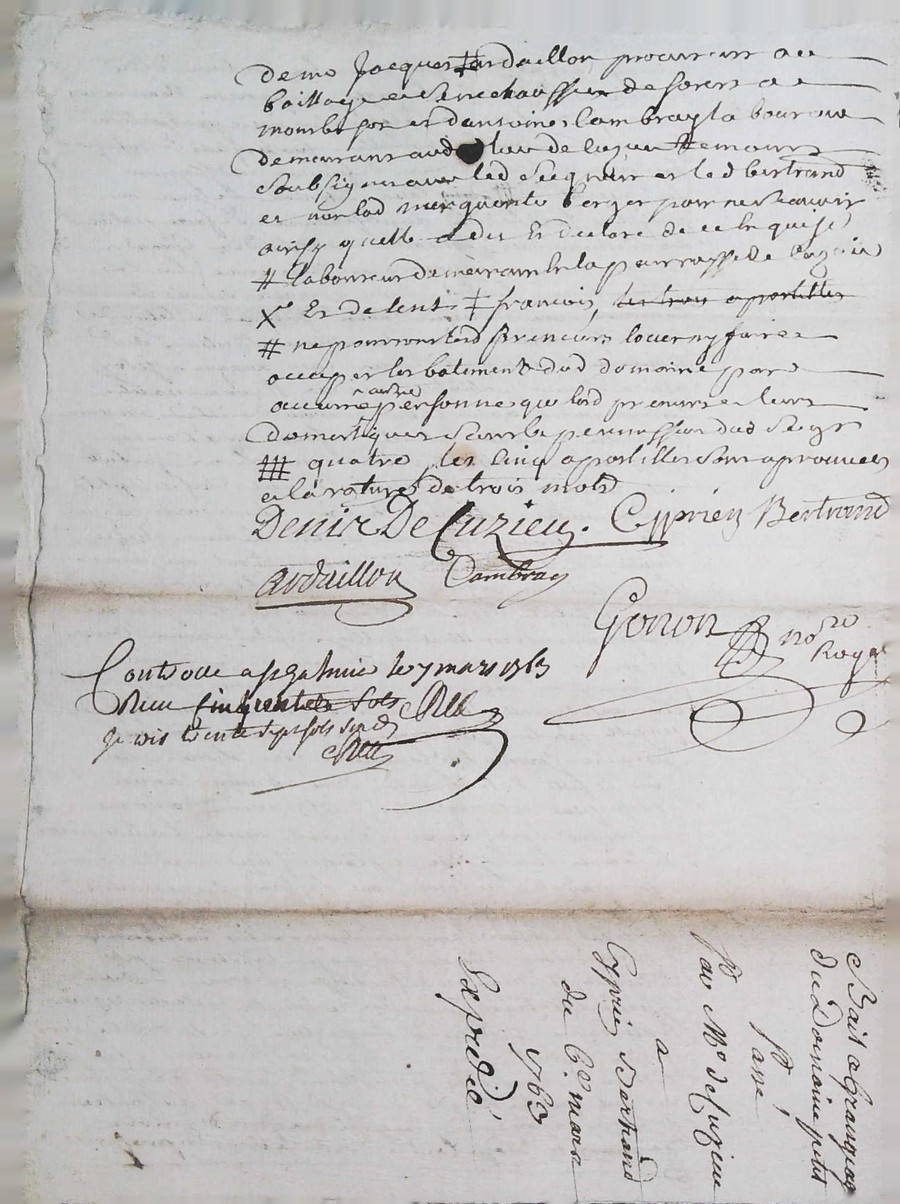 de me Jacques ‡ ardaillon procureur au
baillage et senechaussée de forest a
montbrison et d'antoine Cambray laboureur
demeurant aud lieu de Cuzieu # temoins
soubsignes avec led seigneur et led bertrand
et non lad marguerite berger pour ne scavoir
ainsy qu'elle a dit et declaré de ce requise
# laboureur demeurant en la parroisse de Cuzieu
X et de lent ‡ francois, les trois apostilles
# ne pourront led preneurs louer ny faire
occuper les batiments dud domaine par
aucune autre personne que lesd preneurs et leurs
domestiques sans la permission dud seigr
quatre les cinq apostilles sont aprouvées
et la rature de trois mots
Denis De Cuzieu. Ciprien Bertrand
ardaillon Cambray
Gonon nore Royal
Controllé a st galmier le 7 mars 1763
Recu cinquante sols
Je dis trente sept sols six d
Bail a Grangeage
du Domaine petit
par Mr de Cuzieu
a
Cyprien Bertrand
du 6e mars
1763
Expedié